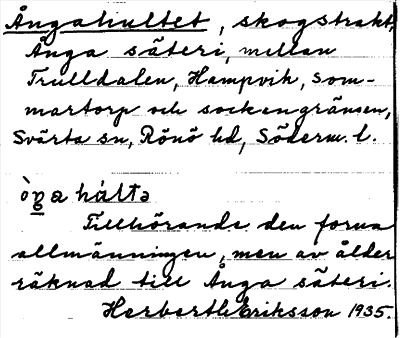 Ångahultet, skogstrakt,
Ånga säteri, mellan
Trulldalen, Hampvik, Som-
martorp och sockengränsen,
Svärta sn, Rönö hd, Söderm. l.
ò̀ŋa húltə
Tillhörande den forna
allmänningen, men av ålder
räknad till Ånga säteri.
Herberth Eriksson 1935.